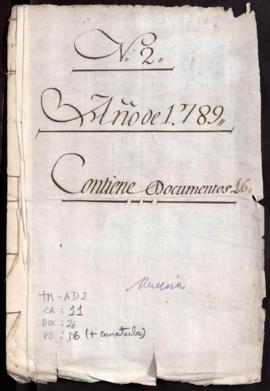 N. 2,,
Año de 1.789,,
Contiene Documentos 16,,
TM-AD2
CA: 11
DOC: 26
(+ caratula)